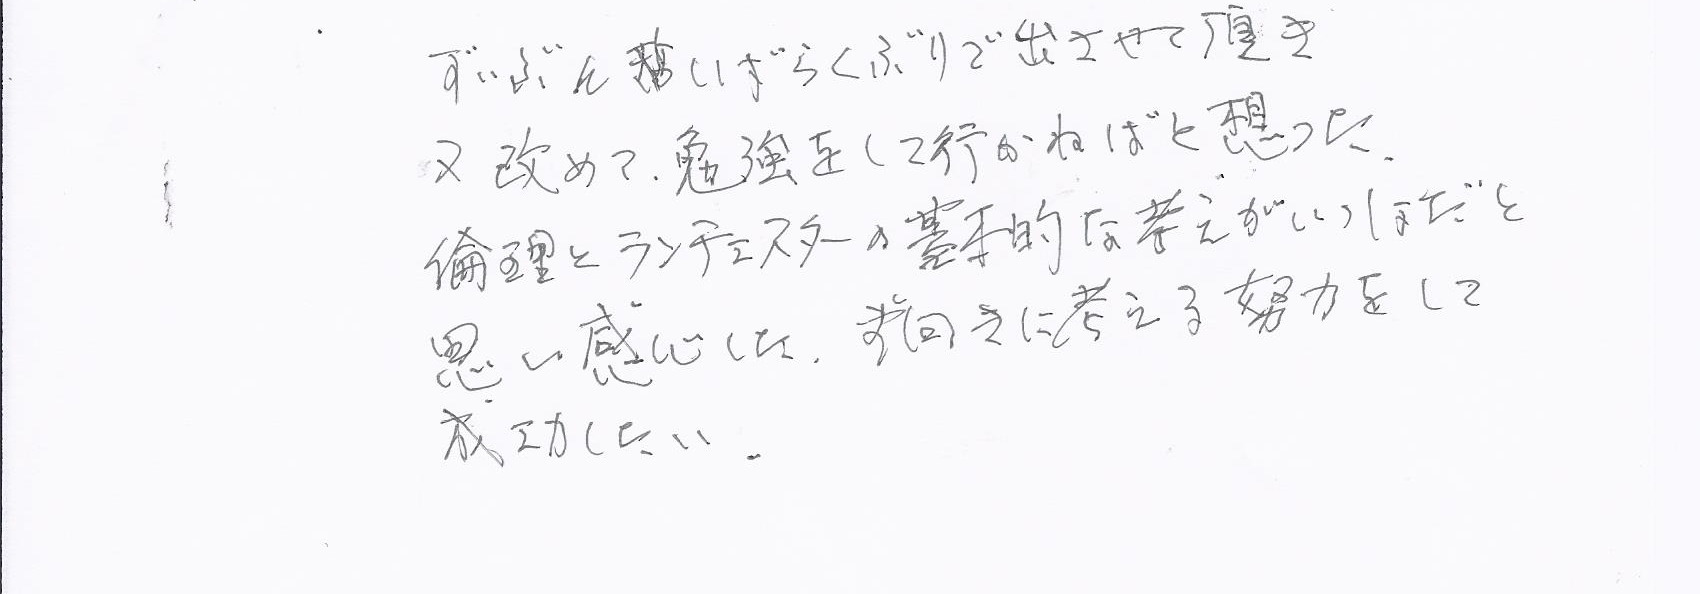 ずいぶん しばらくぶりで出させて頂き
又改めて、勉強をして行かねばと想った。
倫理とランチェスターの基本的な考えがいっしょだと
思い感心した。前向きに考える努力をして
成功したい。